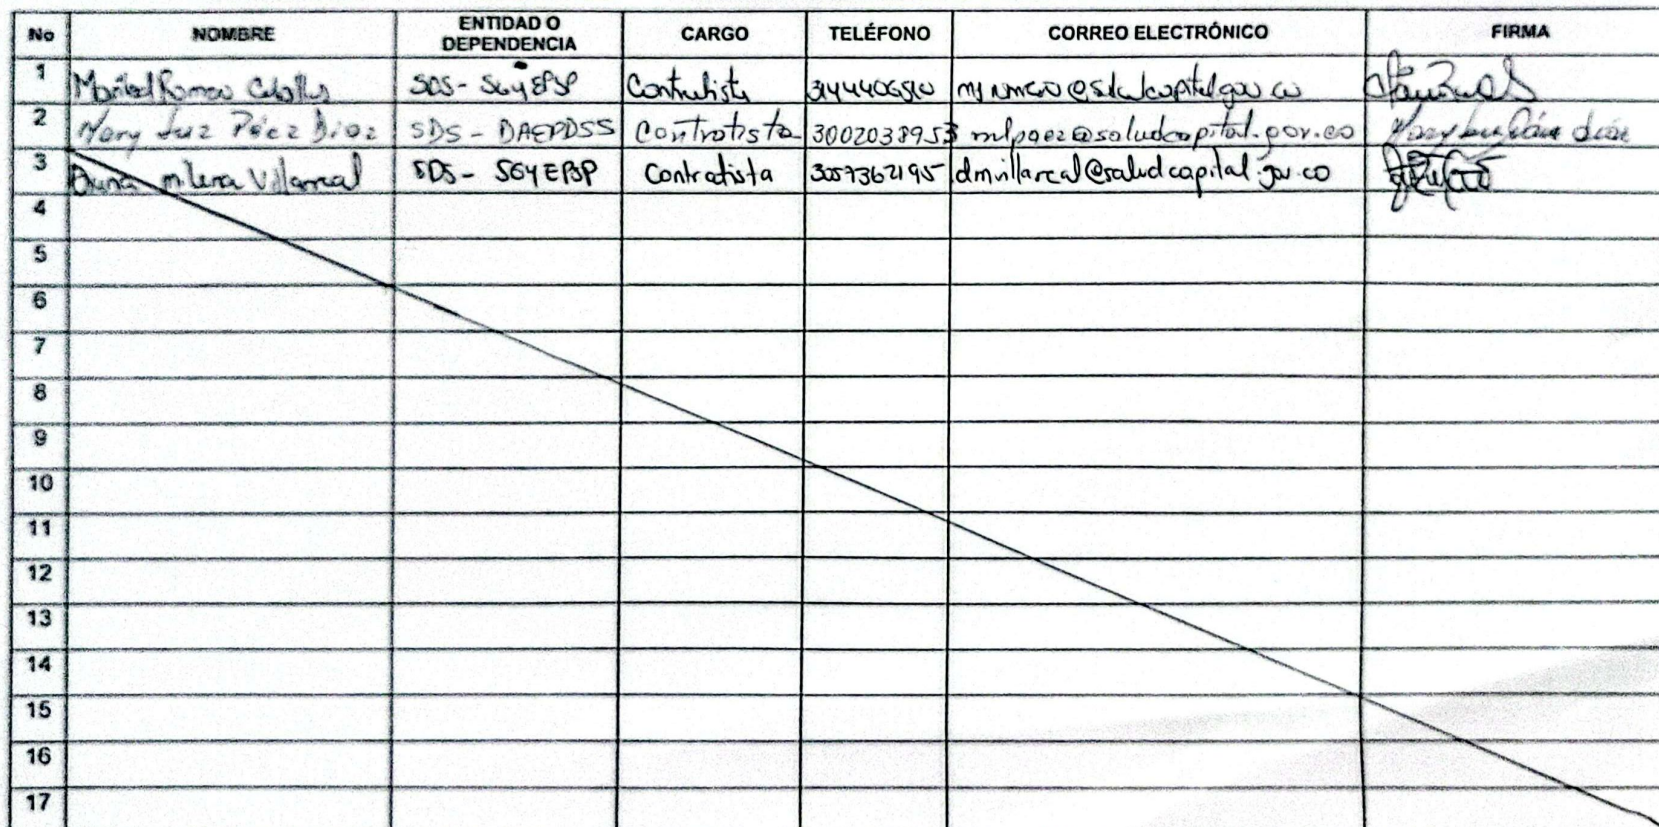 No NOMBRE ENTIDAD O DEPENDENCIA CARGO TELÉFONO CORREO ELECTRÓNICO FIRMA
1 Maribel Romero SDS - SGYEPSP Contratista @saludcapital.gov.co
2 Mary Luz Páez Díaz SDS - DAEPDSS Contratista 3002038953 mlpaez@saludcapital.gov.co Mary Luz Páez Díaz
3 Diana milena Villarreal SDS - SGYEPSP Contratista 3057362195 dmvillareal@saludcapital.gov.co
4
5
6
7
8
9
10
11
12
13
14
15
16
17